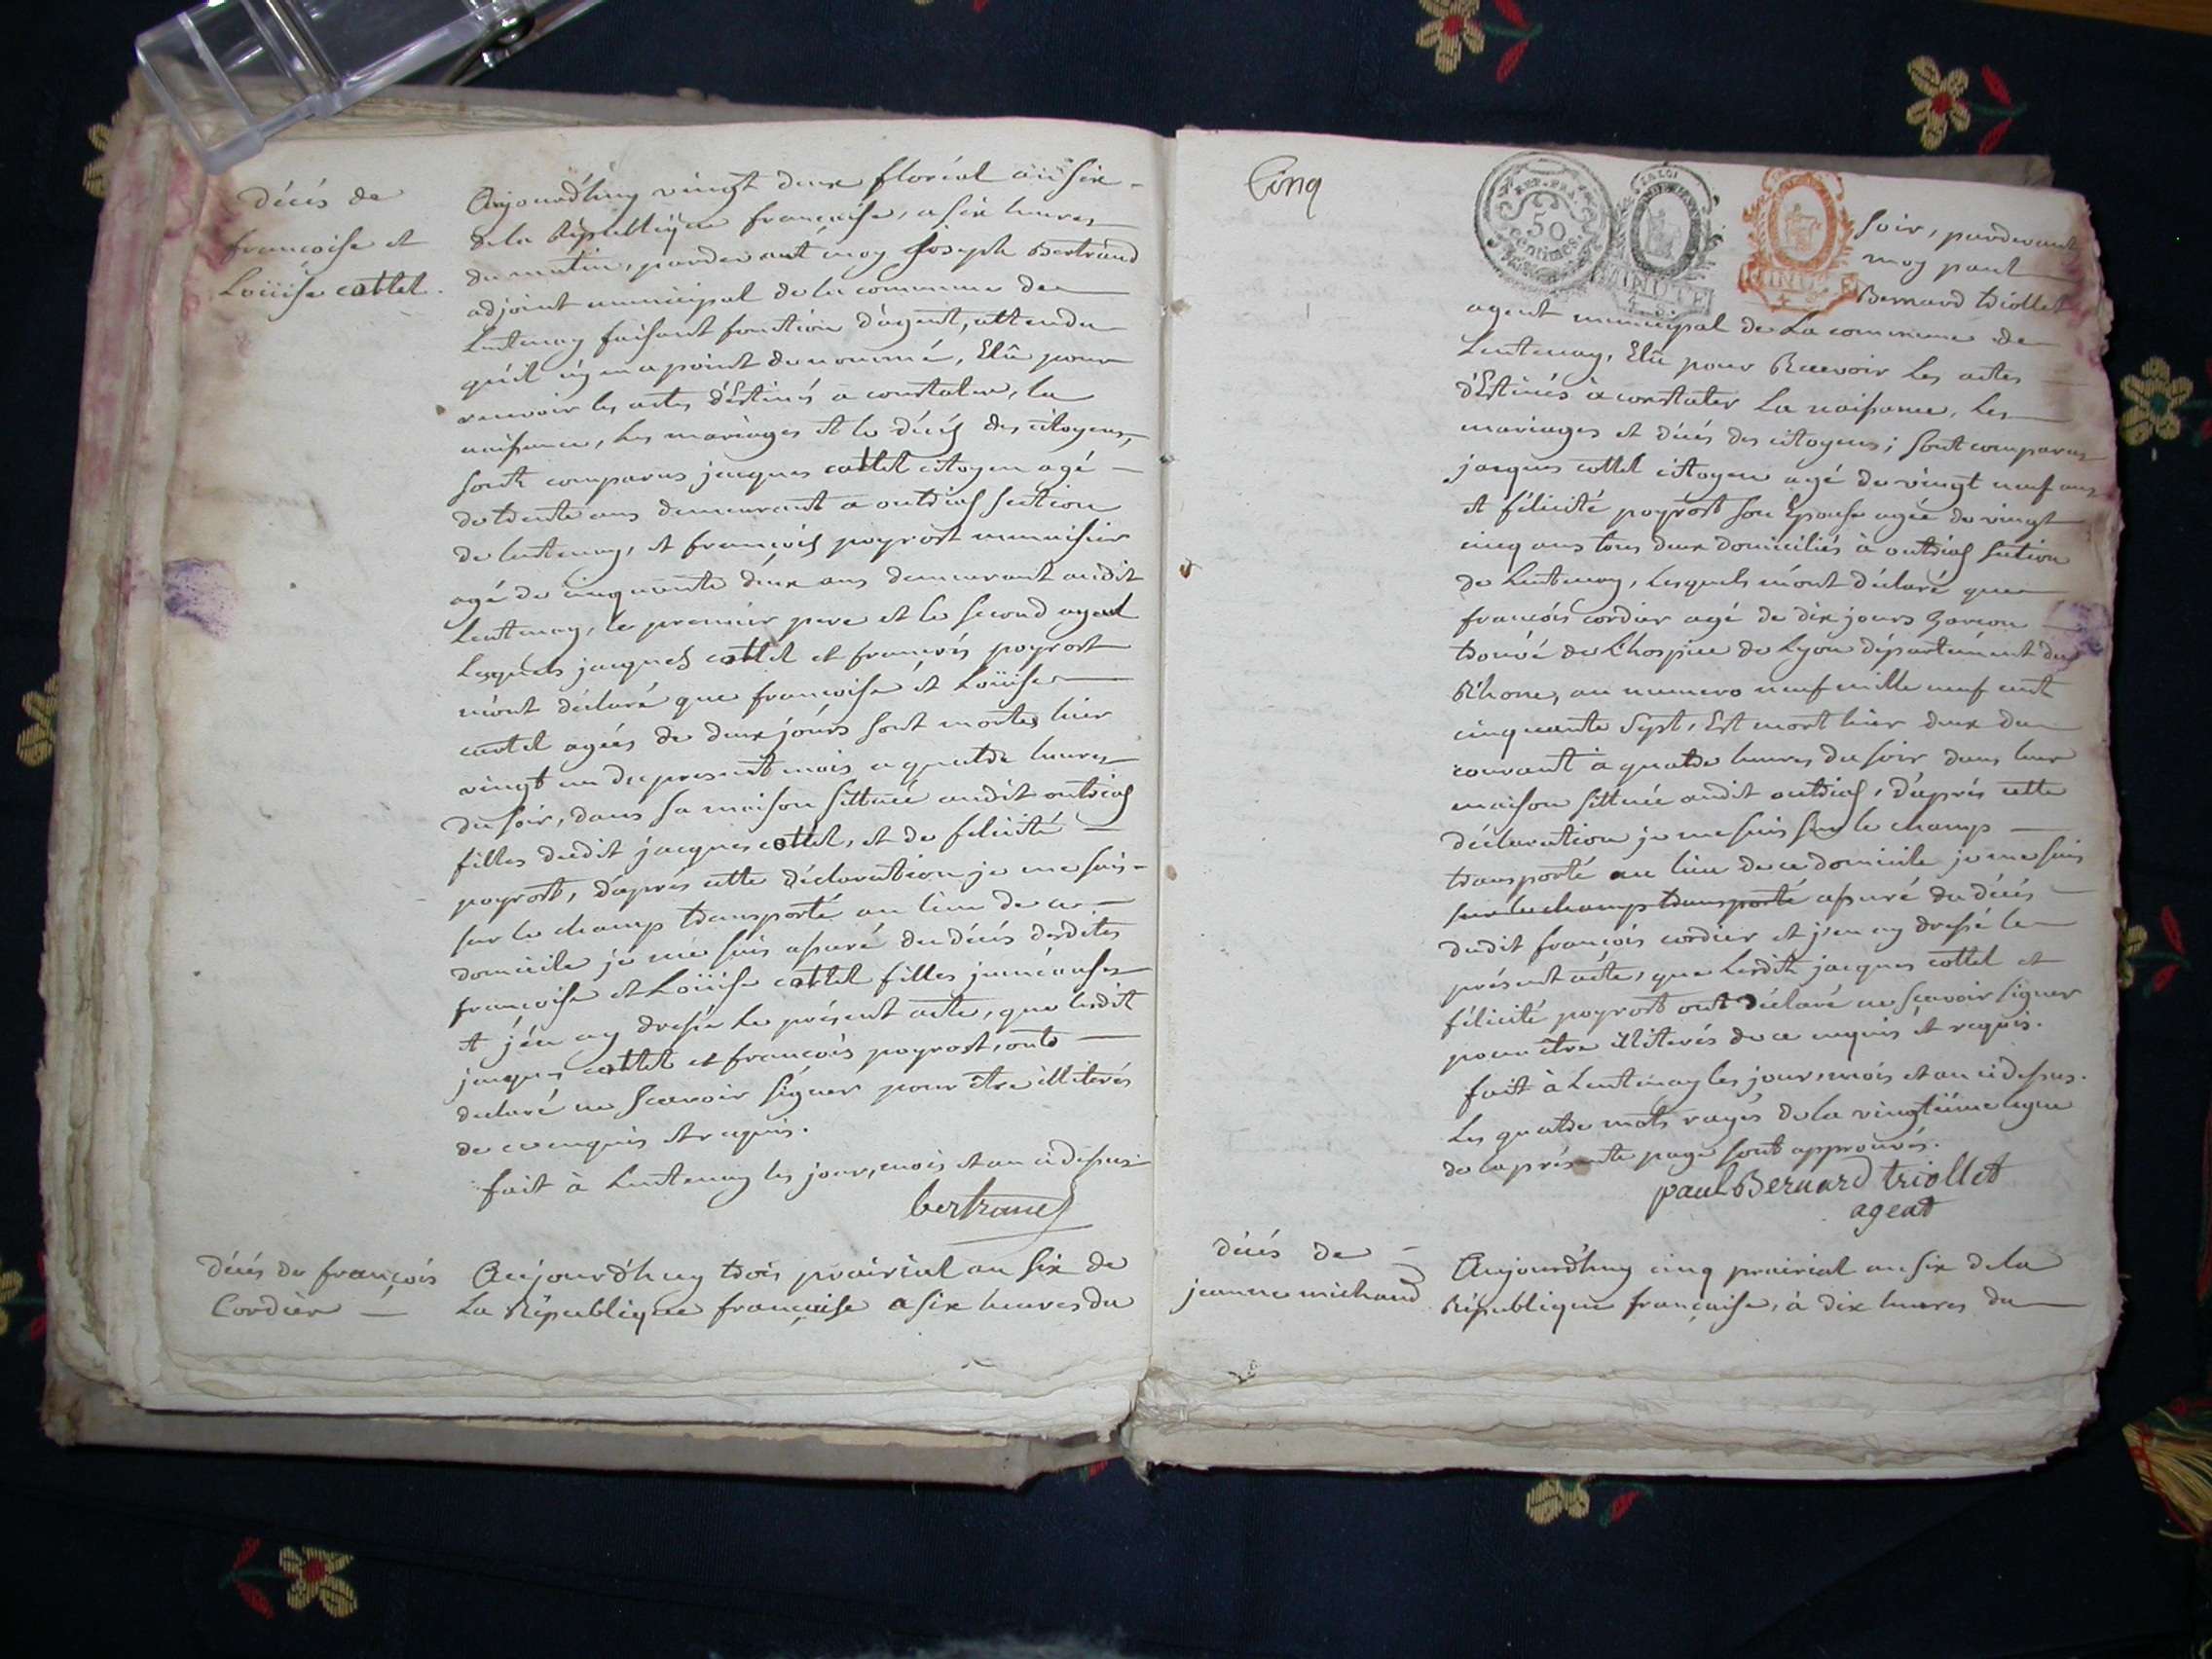 décés de
françoise et
Loüise cottet.
Aujourd'huy vingt deux floréal an six
de la République françoise, a six heures
du matin, pardevant moy Joseph Bertrand
adjoint municipal de la commune de
Lentenay faisant fonction d'agent, attendu
qu'il n'y en a point de nommé, Elû pour
recevoir les actes déstinés a constater, la
naissance, les mariages et le décés des citoyens,
sont comparus jacques cottet citoyen agé
de trente ans demeurant a outrias section
de lentenay, et françois poyrost menuisier
agé de cinquante deux ans demeurant audit
Lentenay, le premier pere et le second ayeul
Lesquels jacques cottet et françois poyrost
m'ont déclaré que françoise et Loüise
cottet agées de deux jours sont mortes hier
vingt un du present mois a quatre heures
du soir, dans sa maison sittuée audit outrias
filles dudit jacques cottet, et de felicité
poyrost, d'aprés cette déclaration je me suis
sur le champ transporté au lieu de ce
domicile je me suis assuré du décés desdites
françoise et Loüise cottet filles jumeauses
et j'en ay dressé le présent acte, que lesdit
jacques cottet et françois poyrost, ont
declaré ne scavoir signer pour être illiterés
de ce enquis et requis.
fait à Lentenay les jour, mois et an ci dessus
bertrand
Décés de françois
Cordier
Aujourd'huy trois prairial an six de
La République françoise a six heures du
Cinq
REP. FRA.
50
centimes.
LA LOI
MINUTE
MINUTE
soir, pardevant
moy paul
Bernard triollet
agent municipal de La commune de
Lentenay, Elû pour Recevoir Les actes
déstinés à constater La naissance, Les
mariages et décés des citoyens; sont comparus
jacques cottet citoyen agé de vingt neuf ans
et félicité poyrost son Epouse agée de vingt
cinq ans tous deux domiciliés à outrias section
de Lentenay, Lesquels m'ont déclaré que
françois cordier agé de dix jours garcon
trouvé de L'hospice de Lyon département du
Rhone, au numero neuf mille neuf cent
cinquante sept, Est mort hier deux du
courant à quatre heures du soir dans leur
maison sittuée audit outrias, d'aprés cette
déclaration je me suis sur le champ
transporté au lieu de ce domicile je me suis
sur le champ transporté assuré du décés
dudit françois cordier et j'en ay dressé le
présent acte, que Lesdit jacques cottet et
félicité poyrost ont déclaré ne scavoir signer
pour être illiterés de ce enquis et requis.
fait à Lentenay les jour, mois et an ci dessus.
Les quatre mots rayés de la vingtiéme ligne
de la présente page sont approuvés.
paul Bernard triollet
agent
décés de
jeanne michaud
Aujourd'huy cinq prairial an six de la
République françoise, à dix heures du